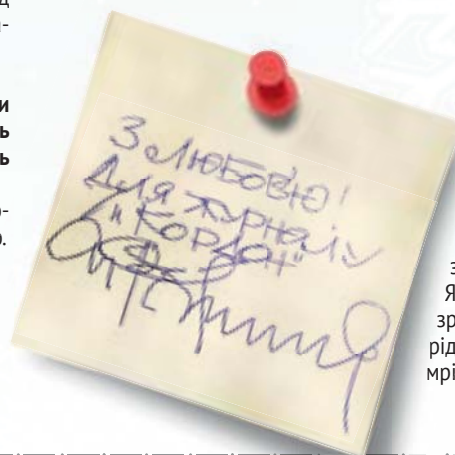 и
ь
ь
З ЛЮБОВ'Ю!
ДЛЯ ЖУРНАЛУ
"КОРДОН"
з
Я
зр
рід
мрі